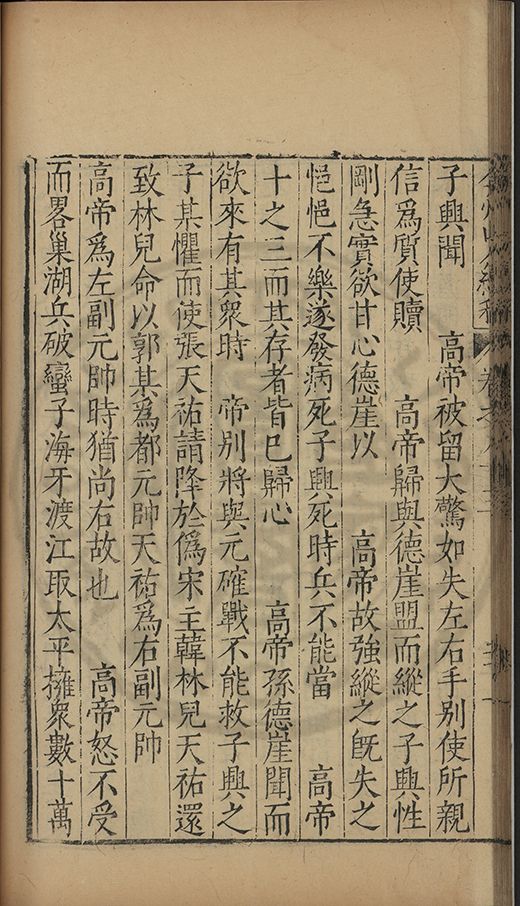 子興聞　　高帝被留大驚如失左右手別使所親
信爲質使贖　　高帝歸與德崖盟而縱之子興性
剛急實欲甘心德崖以　　高帝故強縱之旣失之
悒悒不樂遂發病死子興死時兵不能當　　高帝
十之三而其存者皆已歸心　　高帝孫德崖聞而
欲來有其衆時　　帝別將與元確戰不能救子興之
子某懼而使張天祐請降於僞宋主韓林兒天祐還
致林兒命以郭某爲都元帥天祐爲右副元帥
高帝爲左副元帥時猶尚右故也　　高帝怒不受
而畧巢湖兵破蠻子海牙渡江取太平擁衆數十萬